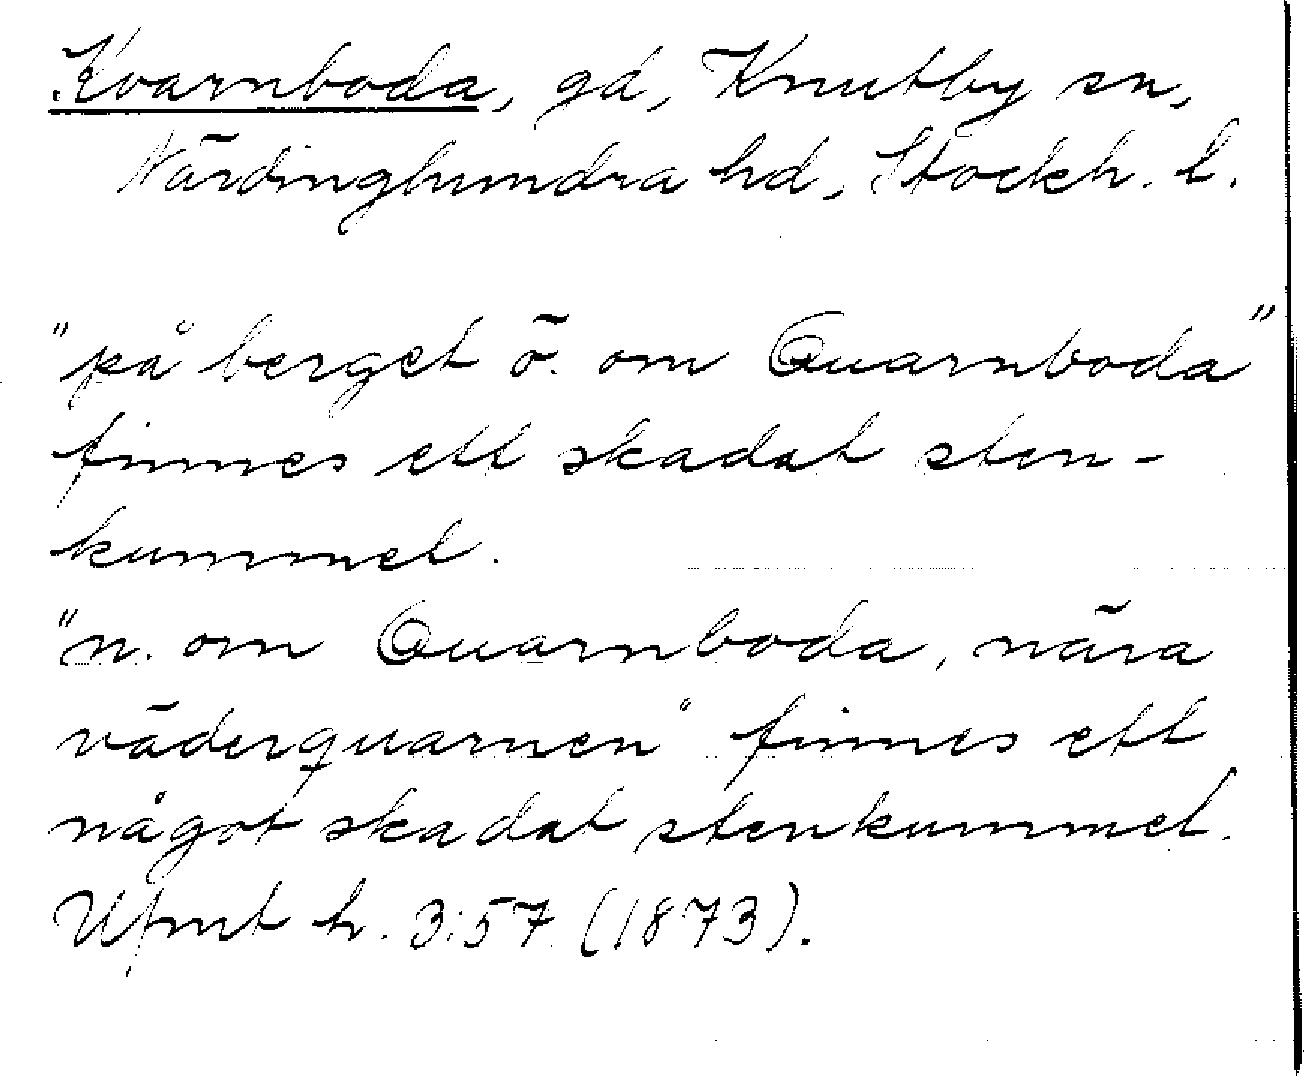 Kvarnboda, gd, Knutby sn,
Närdinghundra hd, Stockh. l.
"på berget ö. om Quarnboda"
finnes ett skadat sten-
kummel.
"n. om Quarnboda, nära
väderquarnen" finnes ett
något skadat stenkummel.
Ufmt h. 3:57 (1873).